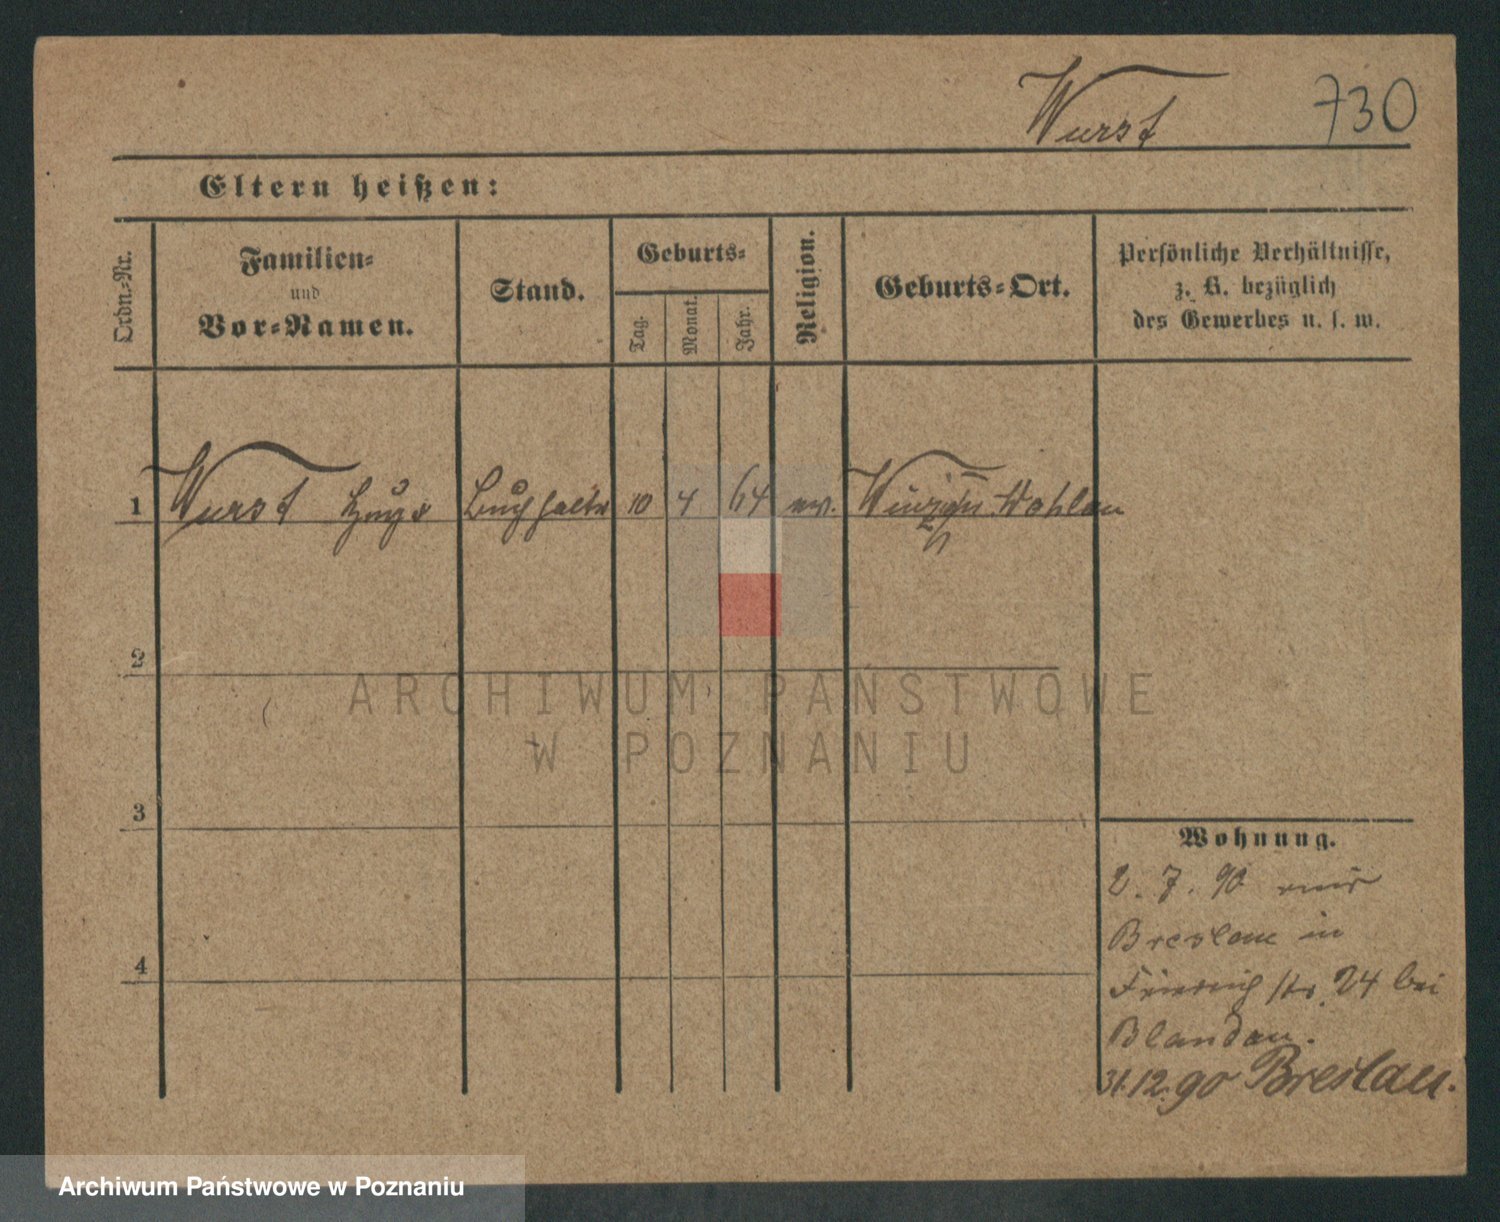 Wurst 730
Eltern heißen:
Ordn.-Nr.
Familien-
und
Vor-Namen.
Stand.
Geburts-
Tag.
Monat.
Jahr.
Religion.
Geburts-Ort.
Persönliche Verhältnisse,
z. B. bezüglich
des Gewerbes u. s. w.
1 Wurst Hugo Buchhalter 10 4 64 ev. Wohlau
2
3
4
Wohnung.
2. 7. 90
Breslau in
Friedrich str. 24 bei
Blandau.
31.12.90 Breslau.
ARCHIWUM PAŃSTWOWE
W POZNANIU
Archiwum Państwowe w Poznaniu